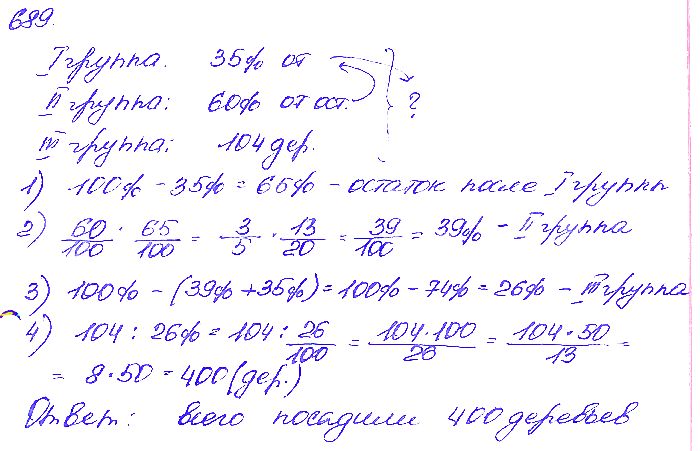 689.
I группа. 35% от
II группа: 60% от ост. ?
III группа: 104 дер.
1) 100% - 35% = 65% - остаток после I группы
2) 60/100 · 65/100 = 3/5 · 13/20 = 39/100 = 39% - II группа
3) 100% - (39% + 35%) = 100% - 74% = 26% - III группа
4) 104 : 26% = 104 : 26/100 = 104·100/26 = 104·50/13 =
= 8·50 = 400 (дер.)
Ответ: всего посадили 400 деревьев